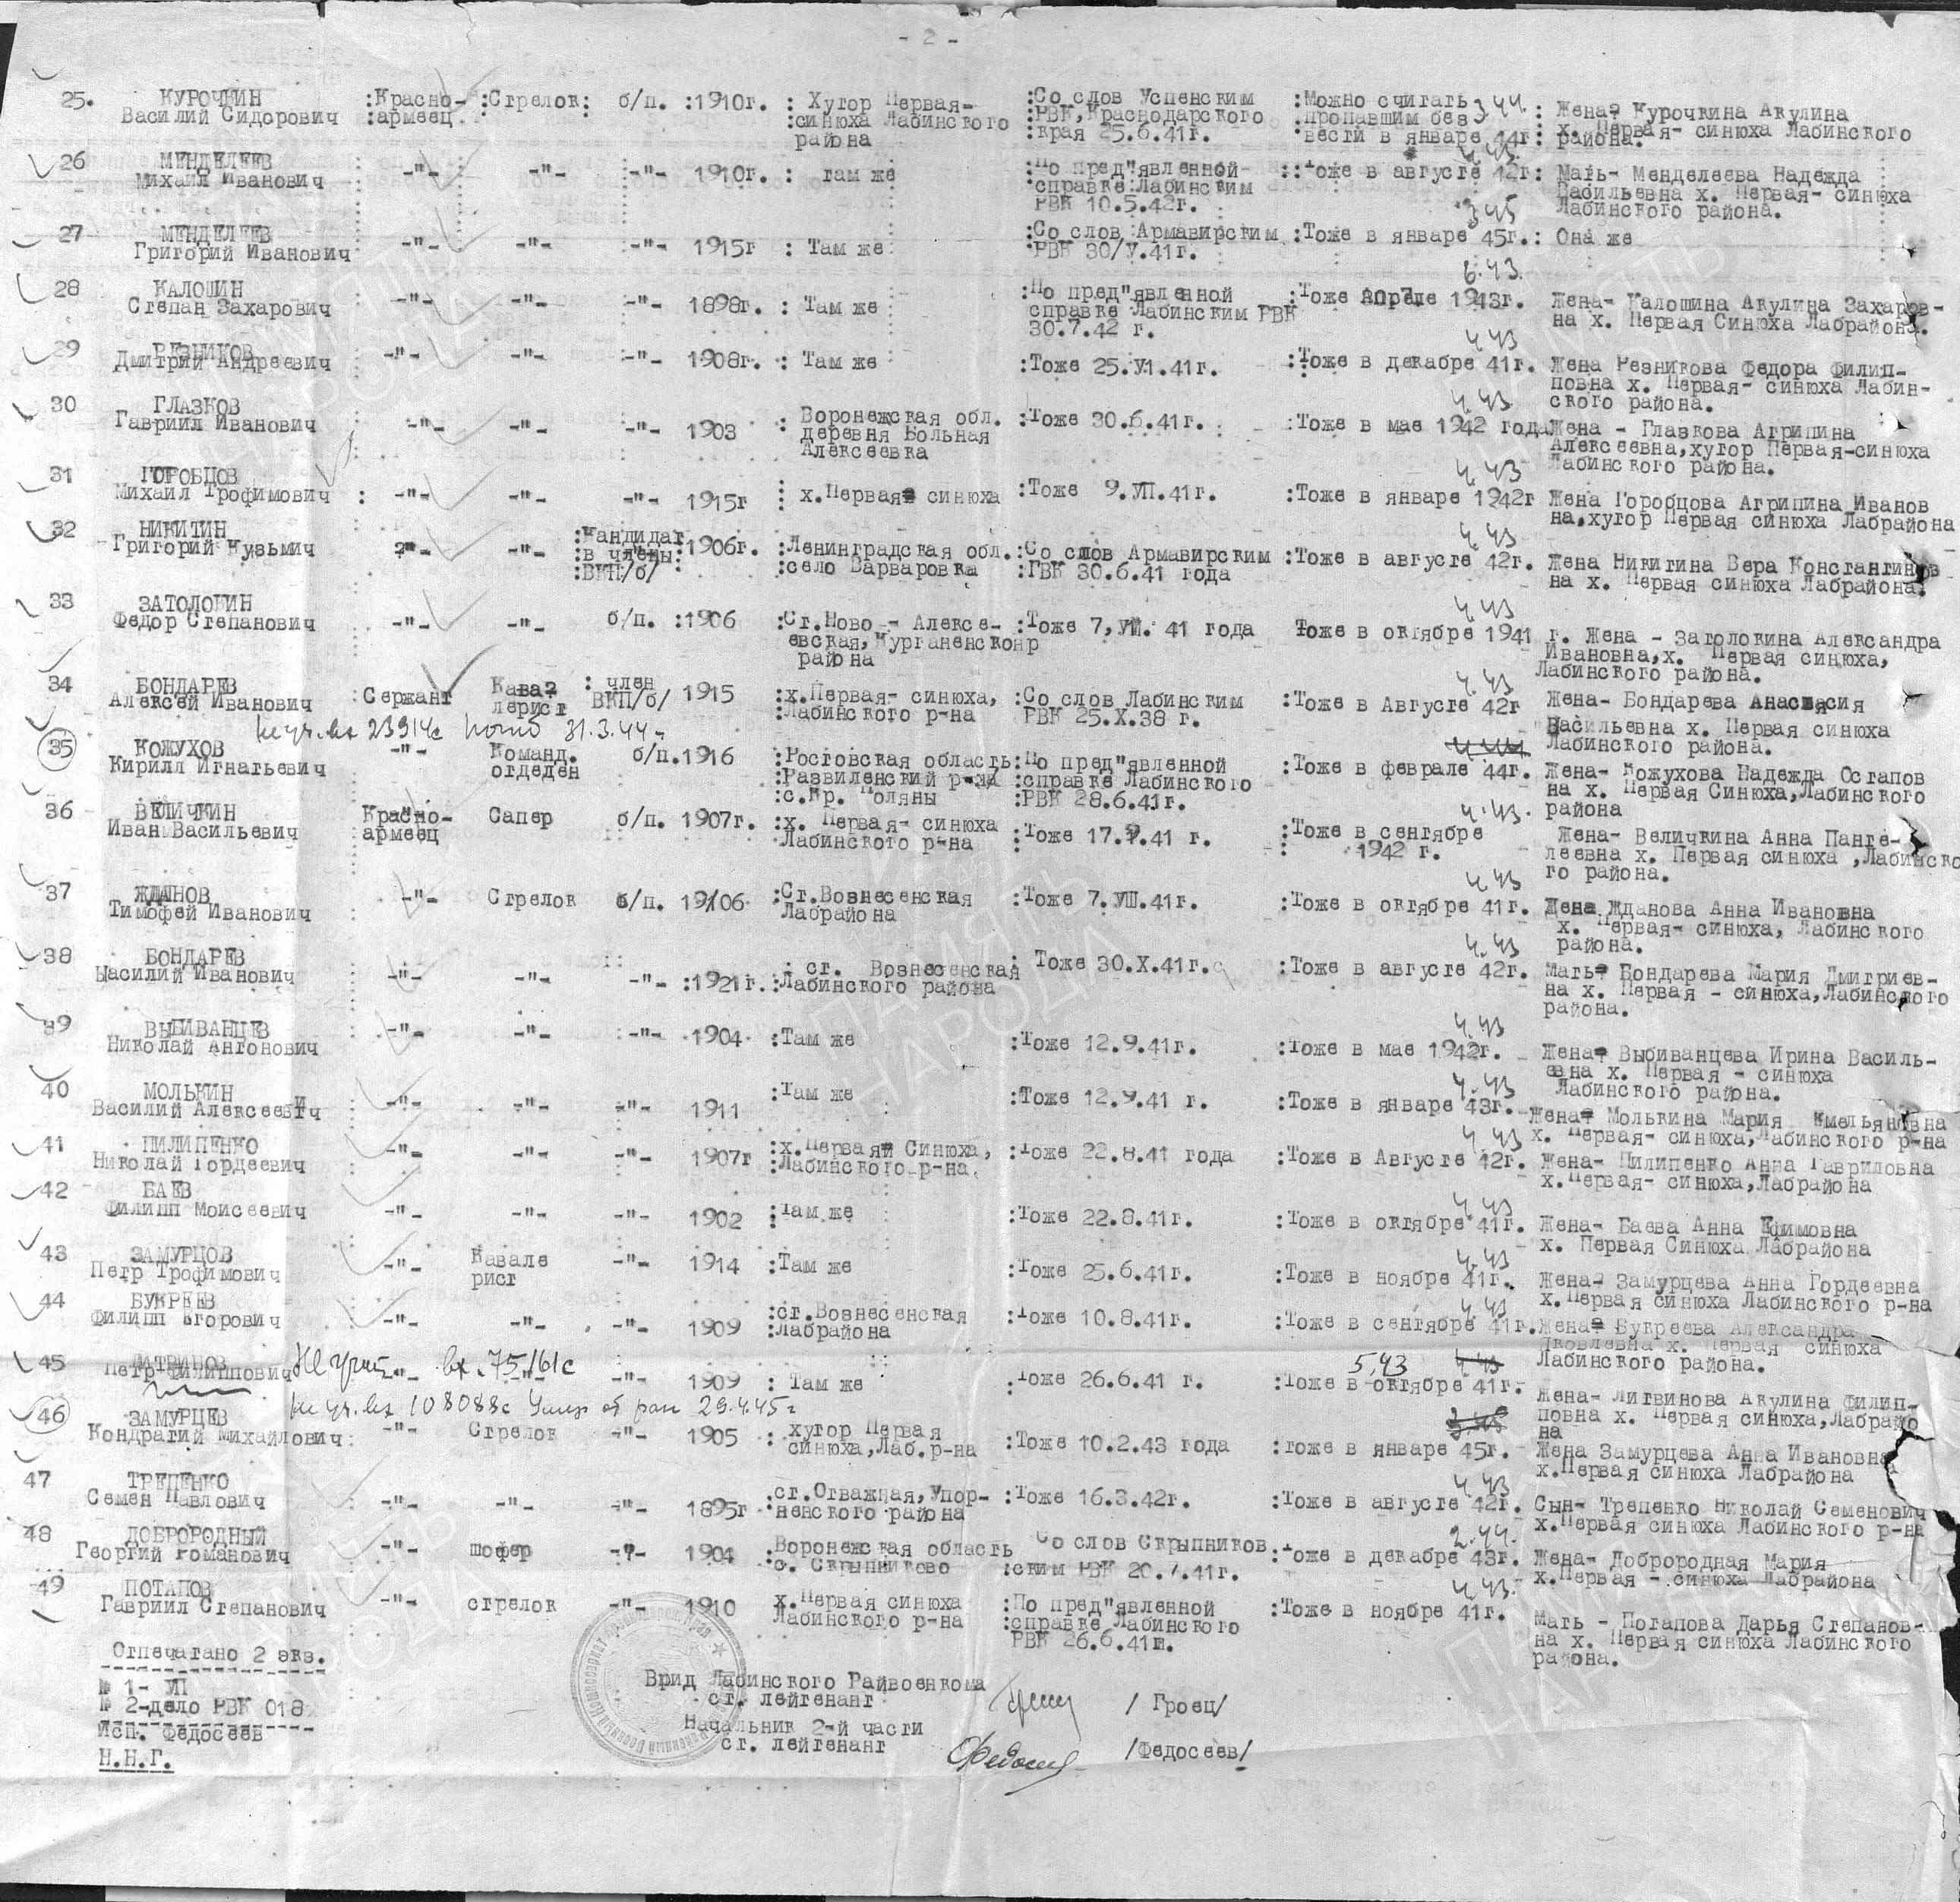 - 2 -
25. КУРОЧКИН Василий Сидорович :Красно-армеец :Стрелок: б/п. :1910г. : Хутор Первая-синюха Лабинского района :Со слов Успенским РВК,Краснодарского края 25.6.41г. :Можно считать пропавшим без вести в январе 44г: 3.44. Жена- Курочкина Акулина х. Первая- синюха Лабинского района.
26 МЕНДЕЛЕЕВ Михаил Иванович -"- -"- -"- 1910г. : там же :По пред"явленной справке Лабинским РВК 10.5.42г. :Тоже в августе 42г: 4.43. Мать- Менделеева Надежда Васильевна х. Первая- синюха Лабинского района.
27 МЕНДЕЛЕЕВ Григорий Иванович -"- -"- -"- 1915г : Там же :Со слов Армавирским РВК 30/У.41г. :Тоже в январе 45г.: 3.45 Она же
28 КАЛОШИН Степан Захарович -"- -"- -"- 1898г. : Там же :По пред"явленной справке Лабинским РВК 30.7.42 г. :Тоже апреле 1943г. 6.43. Жена- Калошина Акулина Захаров-на х. Первая Синюха Лабрайона.
29 РЕЗНИКОВ Дмитрий Андреевич -"- -"- -"- 1908г. : Там же :Тоже 25.У1.41г. :Тоже в декабре 41г. 4.43 Жена Резникова Федора Филип-повна х. Первая- синюха Лабин-ского района.
30 ГЛАЗКОВ Гавриил Иванович -"- -"- -"- 1903 : Воронежская обл. деревня Больная Алексеевка :Тоже 30.6.41г. :Тоже в мае 1942 года 4.43 Жена - Глазкова Агрипина Алексеевна,хутор Первая-синюха Лабинского района.
31 ГОРОБЦОВ Михаил Трофимович : -"- -"- -"- 1915г : х.Первая- синюха :Тоже 9.УП.41г. :Тоже в январе 1942г 4.43 Жена Горобцова Агрипина Иванов на,хутор Первая синюха Лабрайона
32 НИКИТИН Григорий Кузьмич -"- -"- :Кандидат :в члены: :ВКП/б/ 1906г. :Ленинградская обл. :село Варваровка :Со слов Армавирским :ГВК 30.6.41 года :Тоже в августе 42г. 4.43 Жена Никитина Вера Константинов на х. Первая синюха Лабрайона.
33 ЗАТОЛОКИН Федор Степанович -"- -"- б/п. :1906 :Ст.Ново - Алексе-евская,Курганенсконр района :Тоже 7,УШ. 41 года Тоже в октябре 1941 г. 4.43 Жена - Затолокина Александра Ивановна,х. Первая синюха, Лабинского района.
34 БОНДАРЕВ Алексей Иванович :Сержант Кавалерист : член ВКП/б/ 1915 :х.Первая- синюха, :Лабинского р-на :Со слов Лабинским РВК 25.Х.38 г. :Тоже в Августе 42г 4.43 Жена- Бондарева Анастасия Васильевна х. Первая синюха Лабинского района.
не уч. вх 23914с погиб 31.3.44г
35 КОЖУХОВ Кирилл Игнатьевич -"- Команд. отделен б/п.1916 :Ростовская область :Развиленский р-на :с.Кр. Поляны :По пред"явленной :справке Лабинского :РВК 28.6.41г. :Тоже в феврале 44г. Жена- Кожухова Надежда Остапов на х. Первая Синюха,Лабинского района
36 ВЕЛИЧКИН Иван Васильевич Красно-армеец Сапер б/п. 1907г. :х. Первая- синюха :Лабинского р-на :Тоже 17.9.41 г. :Тоже в сентябре 1942 г. 4.43. Жена- Величкина Анна Панте-леевна х. Первая синюха ,Лабинско го района.
37 ЖДАНОВ Тимофей Иванович -"- Стрелок б/п. 19/06 :Ст.Вознесенская Лабрайона :Тоже 7.УШ.41г. :Тоже в октябре 41г. 4.43 Жена Жданова Анна Ивановна х. Первая- синюха, Лабинского района.
38 БОНДАРЕВ Василий Иванович -"- -"- -"- :1921г. : ст. Вознесенская :Лабинского района Тоже 30.Х.41г. :Тоже в августе 42г. 4.43 Мать- Бондарева Мария Дмитриев-на х. Первая - синюха,Лабинского района.
39 ВЫБИВАНЦЕВ Николай Антонович -"- -"- -"- 1904 :Там же :Тоже 12.9.41г. :Тоже в мае 1942г. 4.43 Жена- Выбиванцева Ирина Василь-евна х. Первая - синюха Лабинского района.
40 МОЛЬКИН Василий Алексеевич -"- -"- -"- 1911 :Там же :Тоже 12.9.41 г. :Тоже в январе 43г. 4.43 Жена- Молькина Мария Емельяновна х. Первая- синюха,Лабинского р-на
41 ПИЛИПЕНКО Николай Гордеевич -"- -"- -"- 1907г :х.Первая Синюха, :Лабинского р-на :Тоже 22.8.41 года :Тоже в Августе 42г. 4.43 Жена- Пилипенко Анна Гавриловна х.Первая- синюха,Лабрайона
42 БАЕВ Филипп Моисеевич -"- -"- -"- 1902 :Там же :Тоже 22.8.41г. :Тоже в октябре 41г. 4.43 Жена- Баева Анна Ефимовна х. Первая Синюха Лабрайона
43 ЗАМУРЦОВ Петр Трофимович -"- Кавале рист -"- 1914 :Там же :Тоже 25.6.41г. :Тоже в ноябре 41г. 4.43 Жена- Замурцева Анна Гордеевна х.Первая синюха Лабинского р-на
44 БУКРЕЕВ Филипп Егорович -"- -"- -"- 1909 :ст.Вознесенская :Лабрайона :Тоже 10.8.41г. :Тоже в сентябре 41г. 4.43 Жена- Букреева Александра Яковлевна х. Первая синюха Лабинского района.
45 Петр Филиппович -"- -"- -"- 1909 : Там же :Тоже 26.6.41 г. :Тоже в октябре 41г. 5,43 Жена- Литвинова Акулина Филип-повна х. Первая синюха,Лабрайо на
вх.75161с
не уч. вх 108088с Умер от ран 29.4.45г
46 ЗАМУРЦЕВ Кондратий Михайлович: -"- Стрелок -"- 1905 : хутор Первая синюха,Лаб.р-на :Тоже 10.2.43 года :тоже в январе 45г. 3.45 Жена Замурцева Анна Ивановна х.Первая синюха Лабрайона
47 ТРЕПЕНКО Семен Павлович -"- -"- -"- 1895г :ст.Отважная,Упор-ненского района :Тоже 16.3.42г. :Тоже в августе 42г. 4.43 Сын- Трепенко Николай Семенович х.Первая синюха Лабинского р-на
48 ДОБРОРОДНЫЙ Георгий Романович -"- шофер -"- 1904 Воронежская область с. Скрыпниково Со слов Скрыпников ским РВК 20.7.41г. :Тоже в декабре 43г. 2.44. Жена- Доброродная Мария х.Первая - синюха Лабрайона
49 ПОТАПОВ Гавриил Степанович -"- стрелок -"- 1910 х.Первая синюха Лабинского р-на :По пред"явленной :справке Лабинского РВК 26.6.41г. :Тоже в ноябре 41г. 4.43. Мать - Потапова Дарья Степанов-на х. Первая синюха Лабинского района.
Отпечатано 2 экз.
№ 1- УП
№ 2-дело РВК 018
Исп. Федосеев
Н.Н.Г.
Врид Лабинского Райвоенкома
ст. лейтенант / Гроец/
Начальник 2-й части
ст. лейтенант /Федосеев/
ПАМЯТЬ НАРОДА